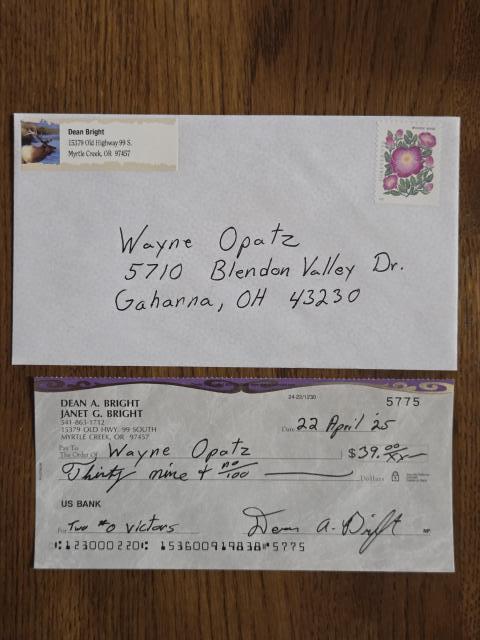 Dean Bright
15379 Old Highway 99 S.
Myrtle Creek, OR 97457
Wayne Opatz
5710 Blendon Valley Dr.
Gahanna, OH 43230
24-22/1230
5775
DEAN A. BRIGHT
JANET G. BRIGHT
541-863-1712
15379 OLD HWY. 99 SOUTH
MYRTLE CREEK, OR 97457
Date 22 April '25
Pay To
The Order Of Wayne Opatz $ 39.00/xx
Thirty nine & no/100 Dollars
US BANK
For Two #0 Victors Dean A. Bright MP
⑆123000220⑆ 153600919838⑈5775